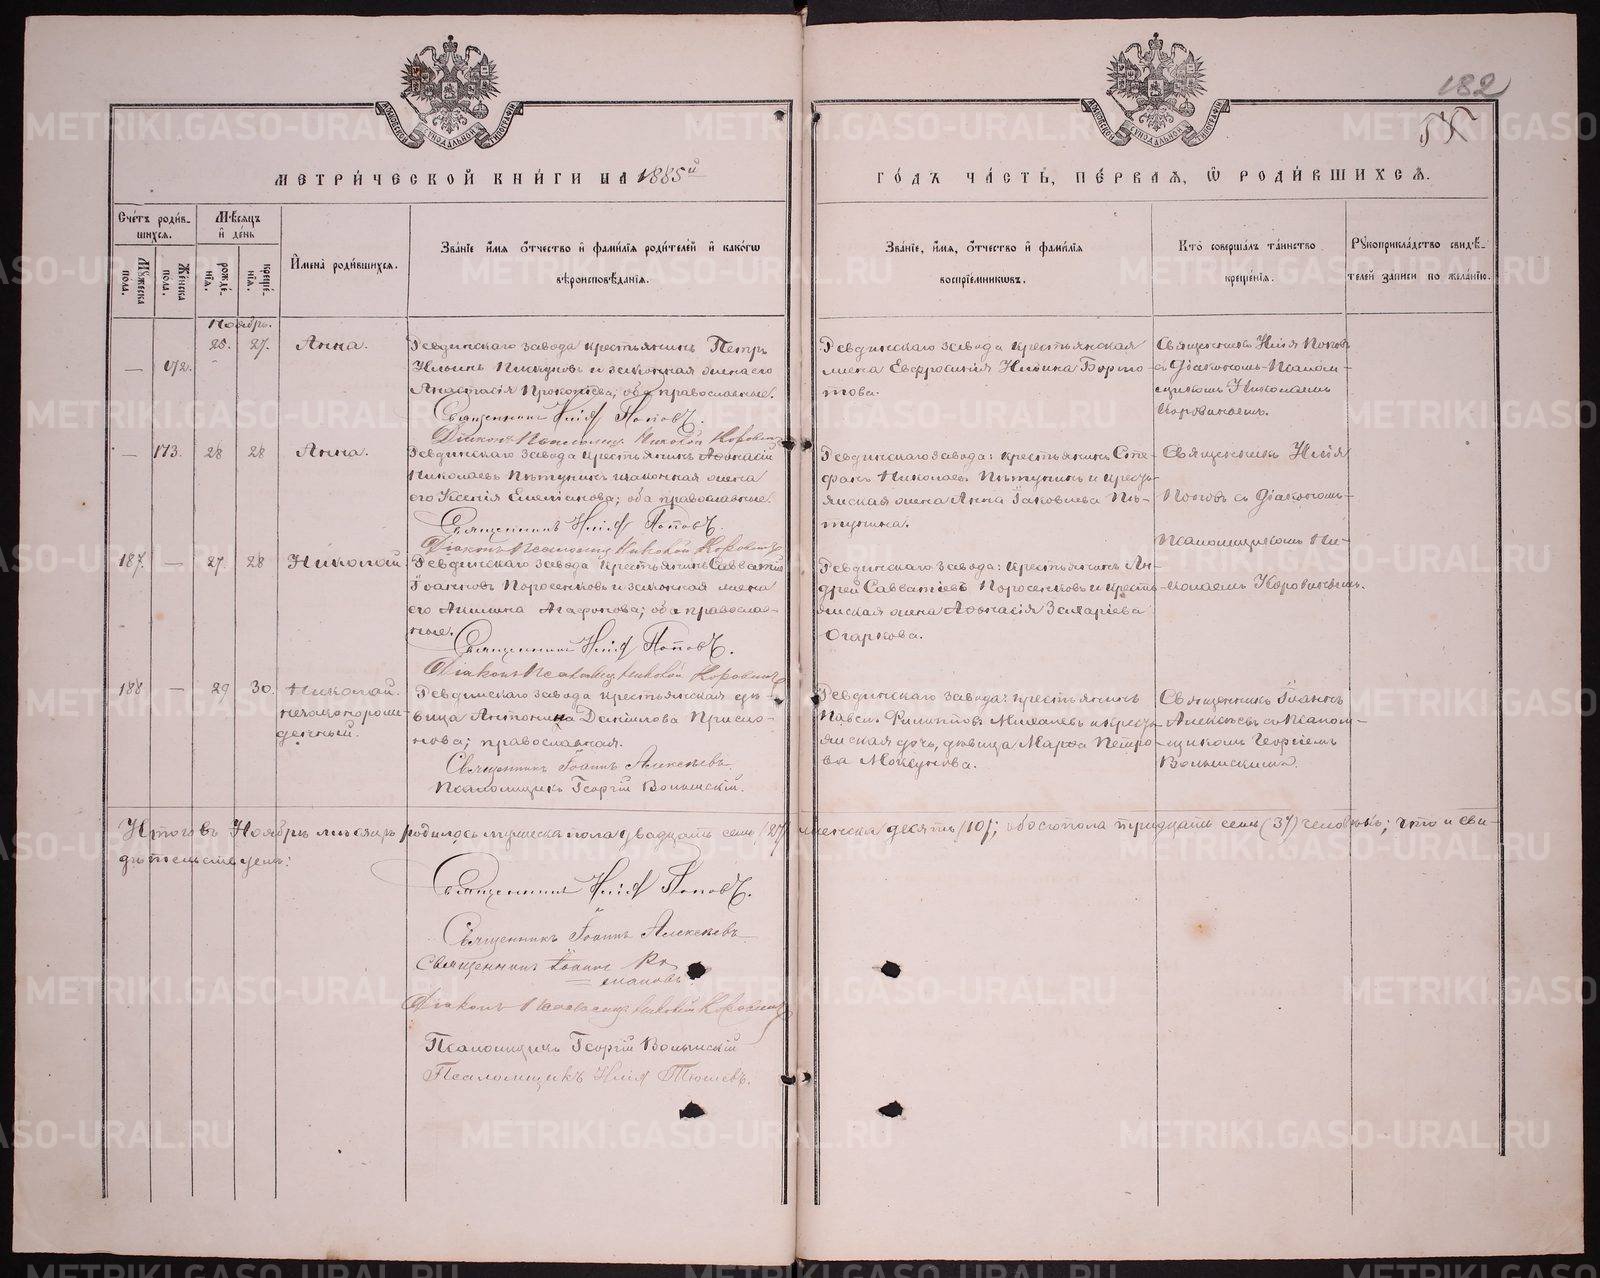 182
МЕТРИ́ЧЕСКОЙ КНИ́ГИ НА 1885й
ГО́ДЪ ЧА́СТЬ, ПЕ́РВАЯ, Ѿ РОДИ́ВШИХСЯ.
Сче́тъ роди́в-
шихся.
Мѣ́сяцъ
и де́нь
Му́жеска
пола.
Же́нска
по́ла.
рожде́-
нія.
креще́-
нія.
Имена́ роди́вшихся.
Зва́ніе имя о́тчество и фами́лія роди́телей и како́гѡ
вѣроисповѣ́данія.
Зва́ніе, имя, о́тчество и фами́лія
воспріе́мникѡвъ.
Кто̀ соверша́лъ та́инство
креще́нія.
Рꙋкоприкла́дство свидѣ́-
телей за́писи по жела́нію.
Ноябрь.
— 172. 25. 27. Анна.
Ревдинскаго завода крестьянинъ Петръ
Ильинъ Пискуновъ и законная жена его
Анастасія Прокопіева; оба православные.
Священникъ Илія Поповъ.
Діаконъ Псаломщ. Николай Коровинъ
Ревдинскаго завода крестьянская
жена Евфросинія Ильина
това.
Священникъ Илія Поповъ
съ Діакономъ-Псалом-
щикомъ Николаемъ
Коровинымъ.
— 173. 28 28 Анна.
Ревдинскаго завода крестьянинъ Аѳанасій
Николаевъ Пѣтунинъ и законная жена
его Ксенія; оба православные.
Священникъ Илія Поповъ.
Діаконъ Псаломщ. Николай Коровинъ
Ревдинскаго завода: крестьянинъ Сте-
фанъ Николаевъ Пѣтунинъ и кресть-
янская жена Анна Іаковлева Пѣ-
тунина.
Священникъ Илія
Поповъ съ Діакономъ-
Псаломщикомъ Ни-
колаемъ Коровинымъ.
187. — 27. 28 Николай.
Ревдинскаго завода крестьянинъ Савватій
Іоанновъ Поросенковъ и законная жена
его Агафонова; оба православ-
ные.
Священникъ Илія Поповъ.
Діаконъ Псаломщ. Николай Коровинъ
Ревдинскаго завода: крестьянинъ Ан-
дрей Савватіевъ Поросенковъ и кресть-
янская жена Аѳанасія Захаріева
Огаркова.
188 — 29 30. Николай.
незаконорож-
денный.
Ревдинскаго завода крестьянская дѣ-
вица Антонина Данилова
нова; православная.
Священникъ Іоаннъ Алексѣевъ.
Псаломщикъ Георгій Волынскій.
Ревдинскаго завода: крестьянинъ
Филипповъ Михалевъ и кресть-
янская дочь, дѣвица Марѳа Петро-
ва
Священникъ Іоаннъ
Алексѣевъ съ Псалом-
щикомъ Георгіемъ
Волынскимъ.
Итого въ Ноябрѣ мѣсяцѣ родилось мужеска пола двадцать семь (27) женска десять (10); обоего пола тридцать семь (37) человѣкъ; что и сви-
дѣтельствуемъ:
Священникъ Илія Поповъ.
Священникъ Іоаннъ Алексѣевъ
Священникъ Іоаннъ
Діаконъ Псаломщ. Николай Коровинъ
Псаломщикъ Георгій Волынскій
Псаломщикъ Илія Тюшевъ.
METRIKI.GASO-URAL.RU